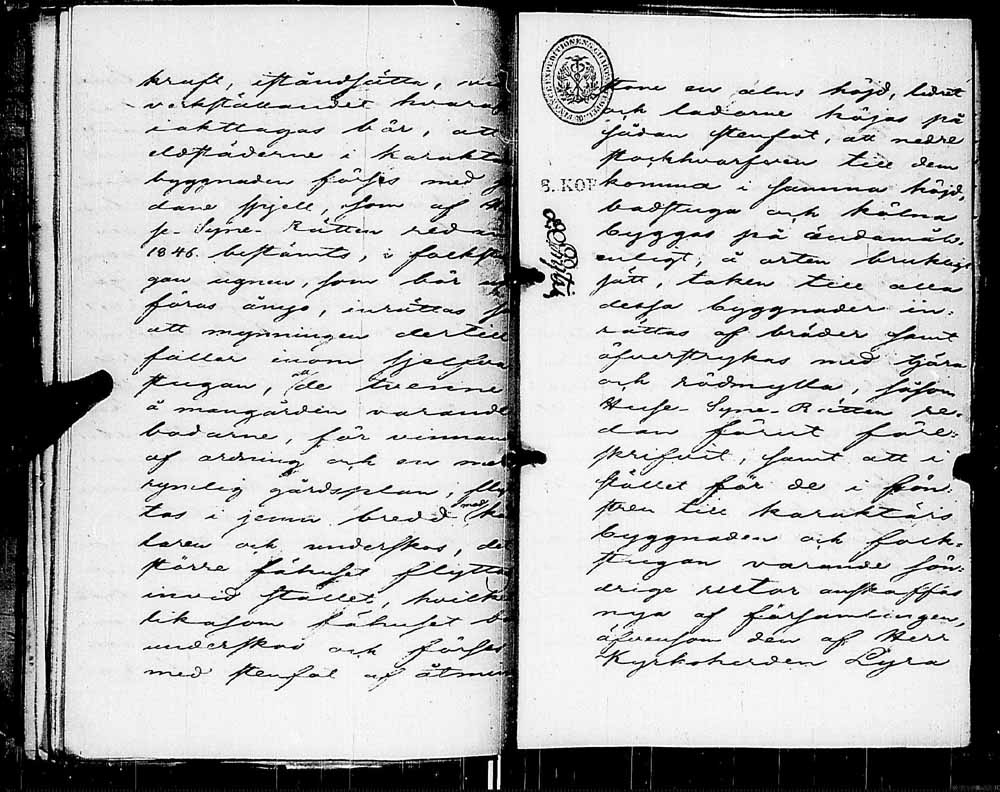 kraft, iståndsätta, vid
verkställandet hvaraf
iakttagas bör, att
eldstäderne i karakt
byggnaden förses med
dane spjell, som af
se-Syne-Rätten redan
1846. bestämts, i folkst
gan ugnen, som bör
föras ånyo, inrättas
att mynningen dertill
faller inom sjelfva
stugan, de tvenne
å mangården varande
bodarne, för vinnan
af ordning och en me
rymlig gårdsplan, flyt
tas i jemn bredd med
laren och underskos, det
större fähuset flytta
invid stallet, hvilk
likasom fähuset bö
underskos och förses
med stenfot af åtmin
stone en alns höjd, lidret
och ladorne höjas på
sådan stenfot, att nedre
stockhvarfven till dem
komma i samma höjd,
badstuga och kölna
byggas på ändamåls-
enligt, å orten brukligt
sätt, taken till alla
dessa byggnader in-
rättas af bräder samt
öfverstrykas med tjära
och rödmylla, såsom
Huse-Syne-Rätten re-
dan förut före-
skrifvit, samt att i
stället för de i fön-
stren till karaktärs
byggnaden och folk-
stugan varande sön-
drige rutor anskaffas
nya af församlingen,
äfvensom den af Herr
Kyrkoherden Lyra